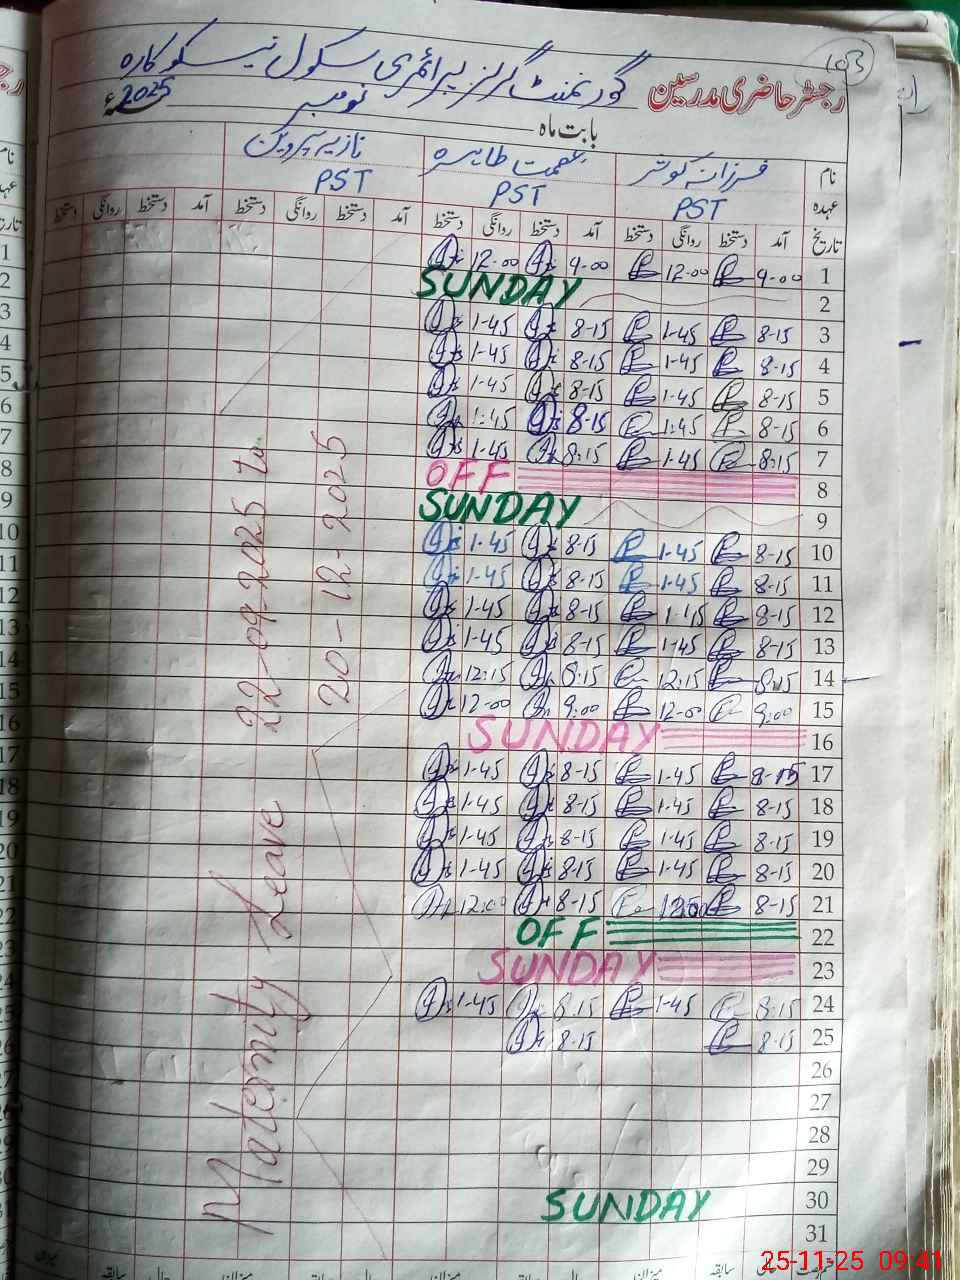 103
رجسٹر حاضری مدرسین گورنمنٹ گرلز پرائمری سکول
بابت ماہ نومبر 2025ء
نام فرزانہ کوثر عصمت طاہرہ نازیہ پروین
عہدہ PST PST PST
تاریخ آمد دستخط روانگی دستخط آمد دستخط روانگی دستخط آمد دستخط روانگی دستخط آمد دستخط روانگی دستخط
1 9-00 12-00 9-00 12-00
2 SUNDAY
3 8-15 1-45 8-15 1-45
4 8-15 1-45 8-15 1-45
5 8-15 1-45 8-15 1-45
6 8-15 1:45 8-15 1:45
7 8:15 1-45 8:15 1-45
8 OFF
9 SUNDAY
10 8-15 1-45 8-15 1-45
11 8-15 1-45 8-15 1-45
12 8-15 1-45 8-15 1-45
13 8-15 1-45 8-15 1-45
14 8:15 12:15 8:15 12:15
15 9:00 12-00 9:00 12-00
16 SUNDAY
17 8-15 1-45 8-15 1-45
18 8-15 1-45 8-15 1-45
19 8-15 1-45 8-15 1-45
20 8-15 1-45 8-15 1-45
21 8-15 12:00 8-15 12:00
22 OFF
23 SUNDAY
24 8:15 1-45 8:15 1-45
25 8-15 8-15
26
27
28
29
30 SUNDAY
31
Maternity Leave 22-09-2025 to
20-12-2025
25-11-25 09:41